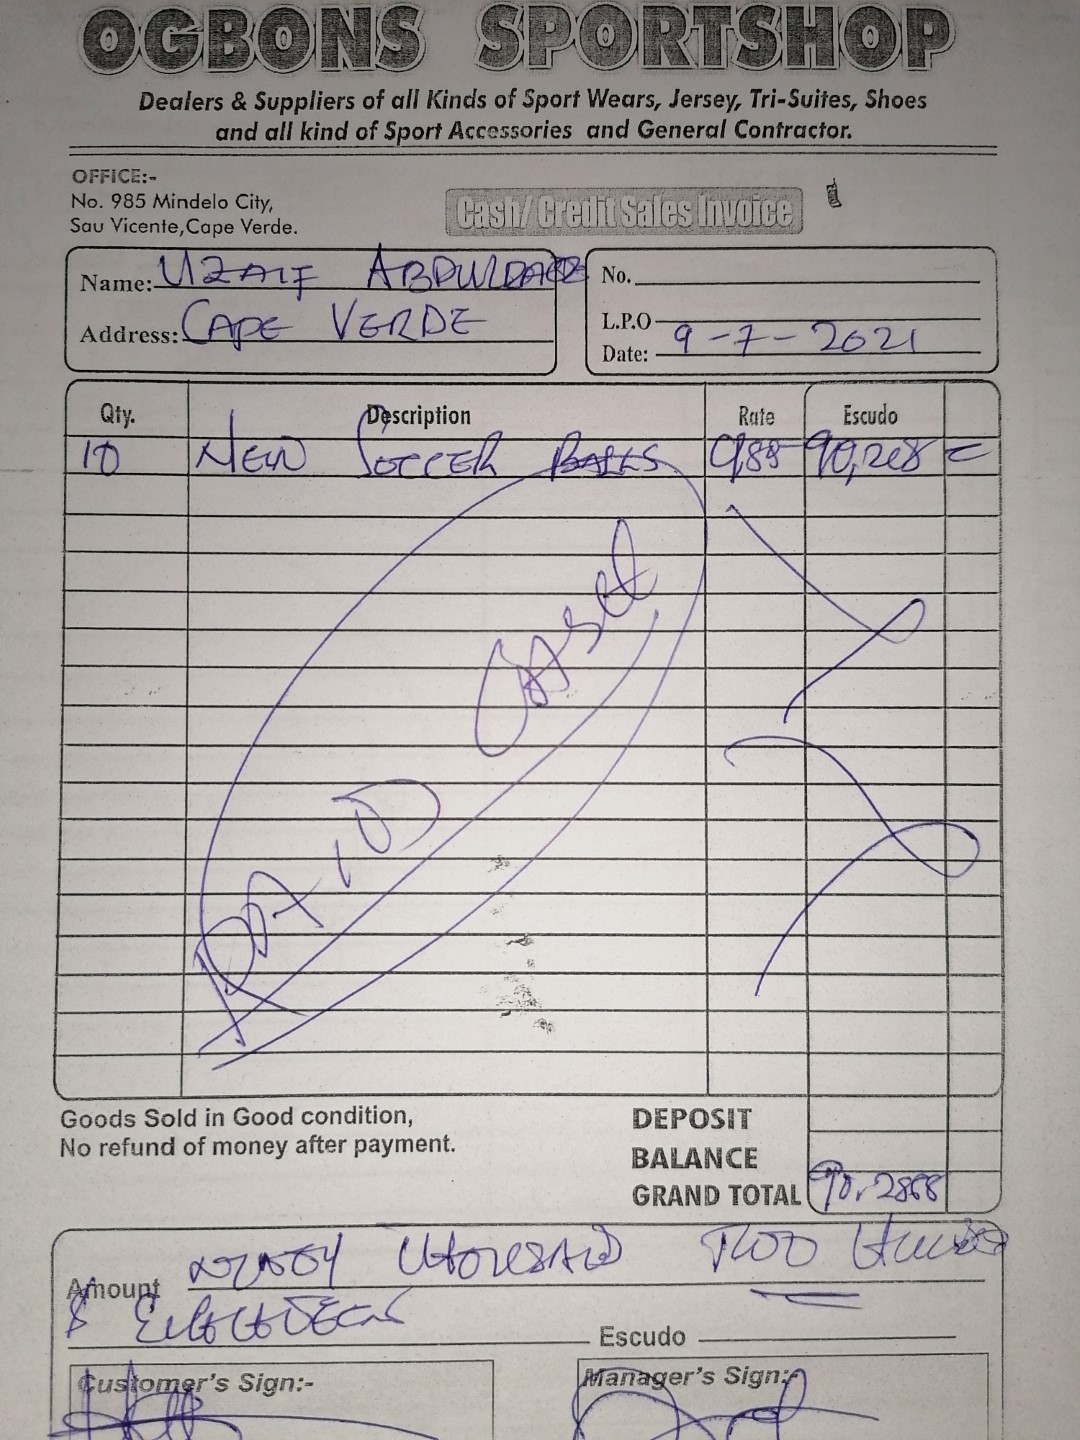 OGBONS SPORTSHOP
Dealers & Suppliers of all Kinds of Sport Wears, Jersey, Tri-Suites, Shoes
and all kind of Sport Accessories and General Contractor.
OFFICE:-
No. 985 Mindelo City,
Sau Vicente,Cape Verde.
Cash/Credit Sales Invoice
Name:
Address: CAPE VERDE
No.
L.P.O
Date: 9-7-2021
Qty. Description Rate Escudo
10 NEW SOCCER BALLS =
PAID CASH
Goods Sold in Good condition,
No refund of money after payment.
DEPOSIT
BALANCE
GRAND TOTAL
Amount
Escudo
Customer's Sign:-
Manager's Sign:-